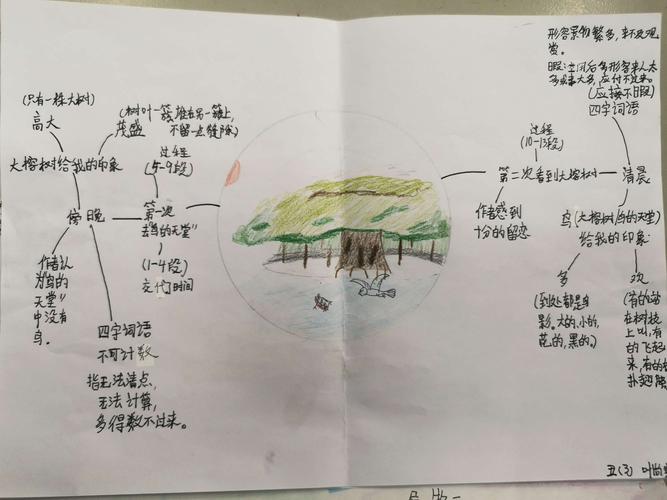 (只有一棵大树)
高大
(树叶一簇堆在另一簇上,
不留一点缝隙)
茂盛
大榕树给我的印象
过程
(5-9段)
傍晚
第一次
去"鸟的天堂"
(1-4段)
交代时间
作者认
为"鸟的
天堂"
中没有
鸟。
四字词语
不可计数
指无法清点,
无法计算,
多得数不过来。
形容景物繁多,来不及观
赏。
(应接不暇)
四字词语
过程
(10-13段)
第二次看到大榕树
清晨
作者感到
十分的留恋
鸟(大榕树/鸟的天堂)
给我的印象
多
欢
(到处都是鸟
影。大的、小的,
花的,黑的。)
(有的站
在树枝
上叫,有
的飞起
来,有的
扑翅膀
五(3)